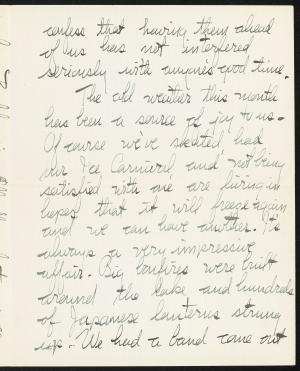 confess that having them ahead
of us has not interfered
seriously with anyone's good time.
The cold weather this month
has been a source of joy to us -
Of course we've skated, had
our Ice Carnival and not being
satisfied with one are living in
hopes that it will freeze again
and we can have another. It's
always a very impressive
affair. Big bonfires were built
around the lake and hundreds
of Japanese lanterns strung
up. We had a band come out